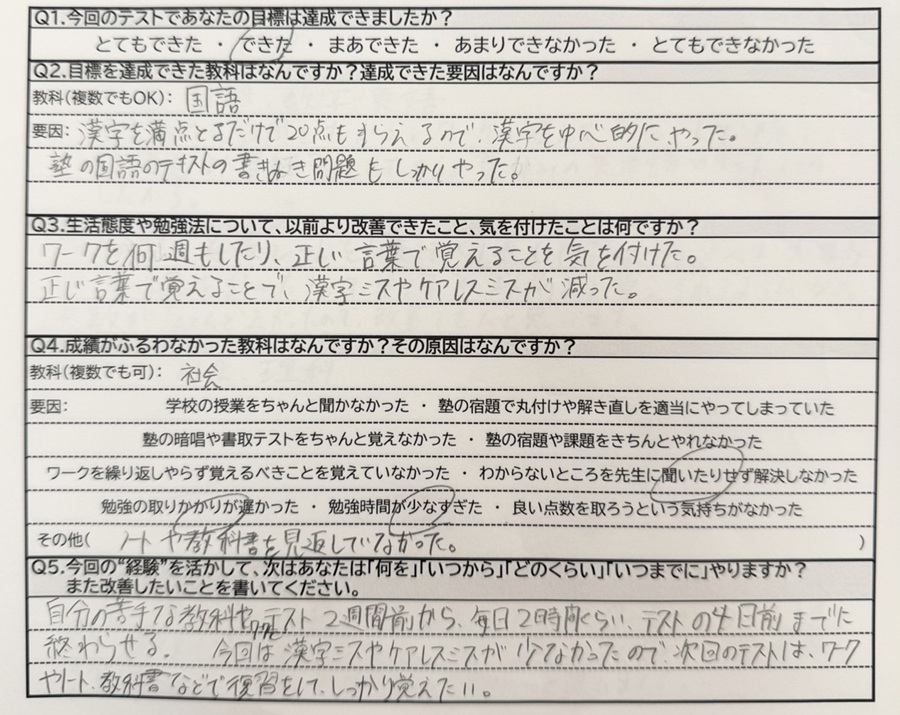 Q1.今回のテストであなたの目標は達成できましたか？
とてもできた ・ できた ・ まあできた ・ あまりできなかった ・ とてもできなかった
Q2.目標を達成できた教科はなんですか？達成できた要因はなんですか？
教科(複数でもOK)： 国語
要因： 漢字を満点とるだけで20点ももらえるので、漢字を中心的にやった。
塾の国語のテキストの書きぬき問題もしっかりやった。
Q3.生活態度や勉強法について、以前より改善できたこと、気を付けたことは何ですか？
ワークを何週もしたり、正しい言葉で覚えることを気を付けた。
正しい言葉で覚えることで、漢字ミスやケアレスミスが減った。
Q4.成績がふるわなかった教科はなんですか？その原因はなんですか？
教科(複数でも可)： 社会
要因： 学校の授業をちゃんと聞かなかった ・ 塾の宿題で丸付けや解き直しを適当にやってしまっていた
塾の暗唱や書取テストをちゃんと覚えなかった ・ 塾の宿題や課題をきちんとやれなかった
ワークを繰り返しやらず覚えるべきことを覚えていなかった ・ わからないところを先生に聞いたりせず解決しなかった
勉強の取りかがりが遅かった ・ 勉強時間が少なすぎた ・ 良い点数を取ろうという気持ちがなかった
その他( ノートや教科書を見返していなかった。 )
Q5.今回の“経験”を活かして、次はあなたは「何を」「いつから」「どのくらい」「いつまでに」やりますか？
また改善したいことを書いてください。
自分の苦手な教科やワークテスト2週間前から、毎日2時間くらい、テストの4日前までに
終わらせる。 今回は漢字ミスやケアレスミスが少なかったので、次回のテストは、ワーク
やノート、教科書などで復習をして、しっかり覚えたい。